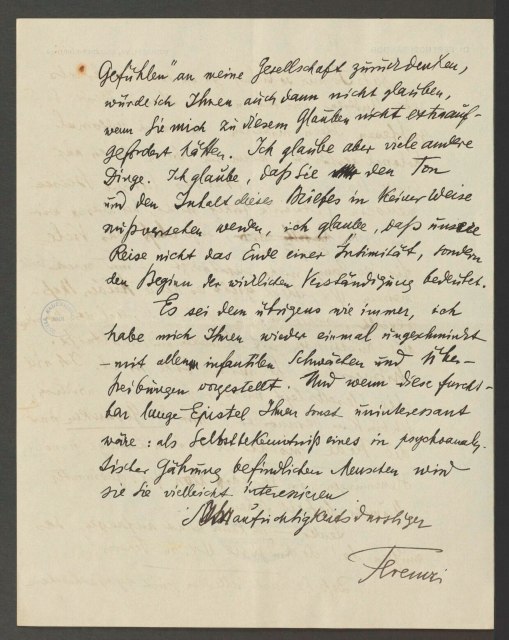 Gefühlen" an meine Gesellschaft zurückdenken,
würde ich Ihnen auch dann nicht glauben,
wenn Sie mich zu diesem Glauben nicht extra auf-
gefordert hätten. Ich glaube aber viele andere
Dinge. Ich glaube, daß Sie den Ton
und den Inhalt dieses Briefes in keiner Weise
mißverstehen werden, ich glaube, daß unsere
Reise nicht das Ende einer Intimität, sondern
den Beginn der wirklichen Verständigung bedeutet.
Es sei dem übrigens wie immer, ich
habe mich Ihnen wieder einmal ungeschminkt
– mit allen infantilen Schwächen und Über-
treibungen vorgestellt. Und wenn diese furcht-
bar lange Epistel Ihnen sonst uninteressant
wäre: als Selbstbekenntniß eines in psychoanaly-
tischer Gährung befindlichen Menschen wird
sie Sie vielleicht interessieren
aufrichtigkeitsdurstiger
Ferenczi